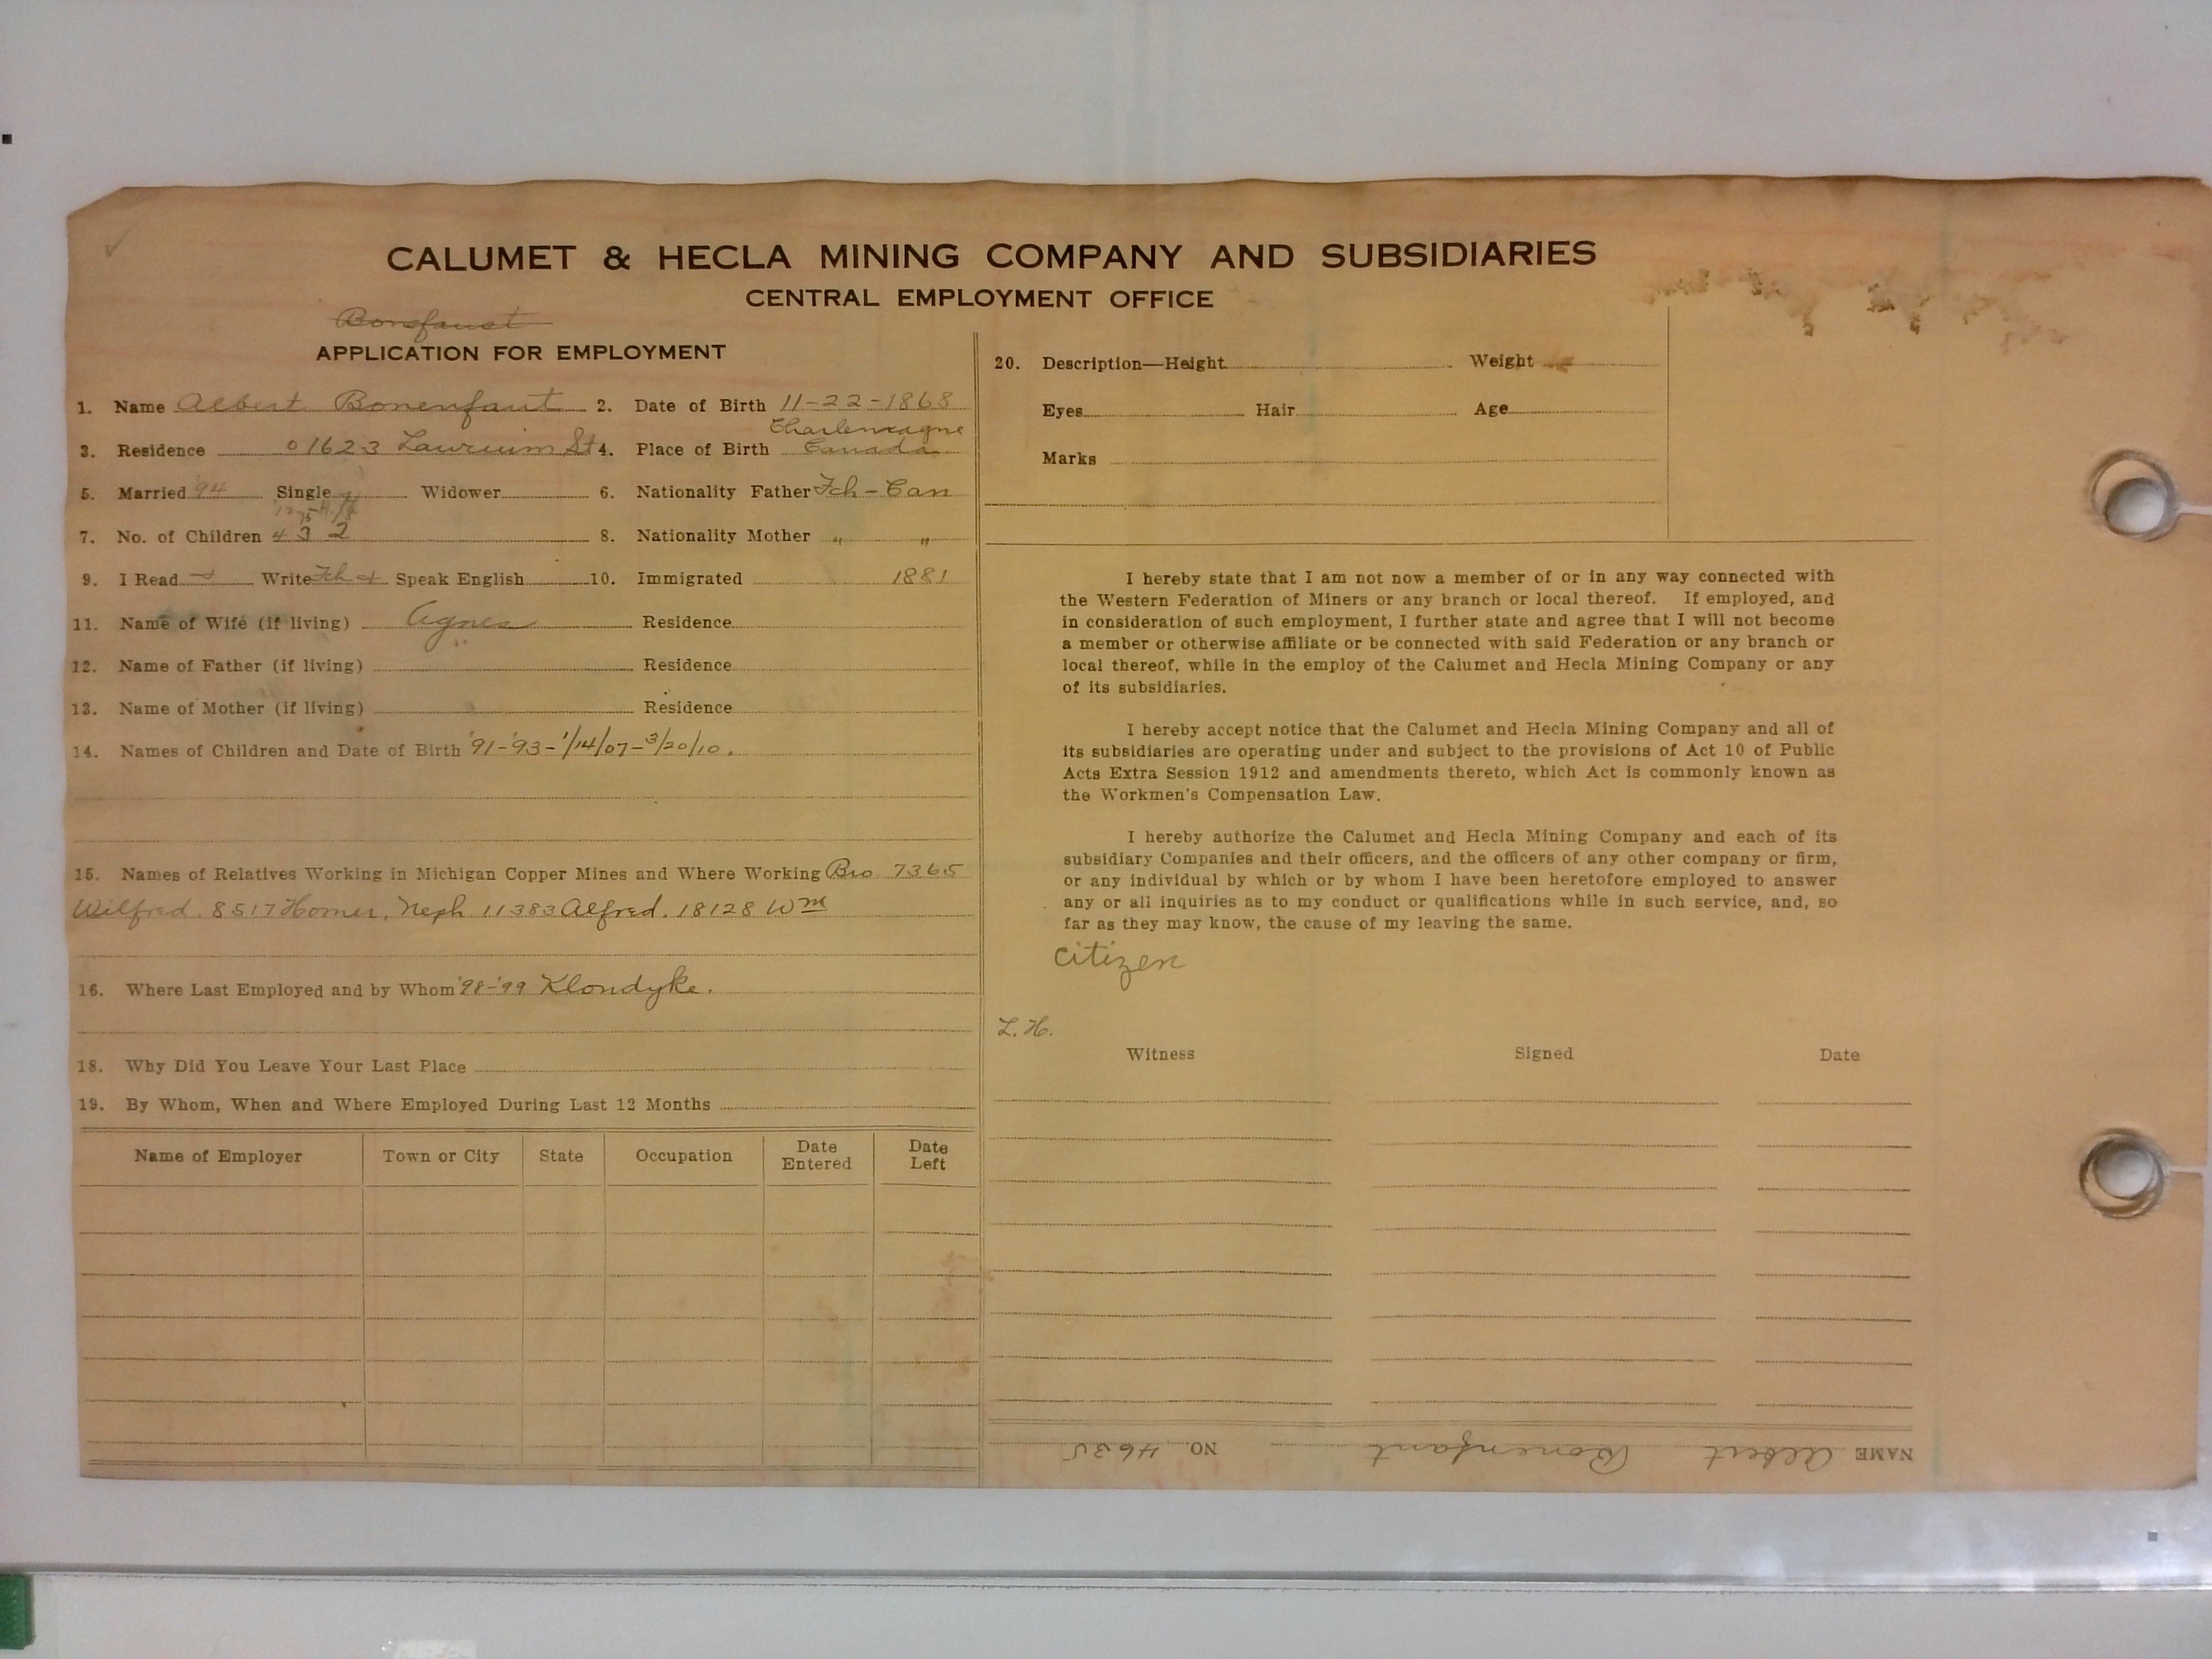 CALUMET & HECLA MINING COMPANY AND SUBSIDIARIES
CENTRAL EMPLOYMENT OFFICE
Bonefant
APPLICATION FOR EMPLOYMENT
1. Name Albert Bonenfant 2. Date of Birth 11-22-1868
3. Residence 01623 Laurium St 4. Place of Birth Charlemagne Canada
5. Married '94 Single Widower 6. Nationality Father Fch-Can
7. No. of Children 4 3 2 8. Nationality Mother " "
9. I Read Write Fch & Speak English 10. Immigrated 1881
11. Name of Wife (if living) Agnes Residence
12. Name of Father (if living) Residence
13. Name of Mother (if living) Residence
14. Names of Children and Date of Birth '91-'93-1/14/07-3/20/10.
15. Names of Relatives Working in Michigan Copper Mines and Where Working Bro 7365
Wilfred. 8517 Homer, Neph 11383 Alfred. 18128 Wm
16. Where Last Employed and by Whom '98-'99 Klondyke.
18. Why Did You Leave Your Last Place
19. By Whom, When and Where Employed During Last 12 Months
Name of Employer Town or City State Occupation Date Entered Date Left
20. Description—Height Weight
Eyes Hair Age
Marks
I hereby state that I am not now a member of or in any way connected with
the Western Federation of Miners or any branch or local thereof. If employed, and
in consideration of such employment, I further state and agree that I will not become
a member or otherwise affiliate or be connected with said Federation or any branch or
local thereof, while in the employ of the Calumet and Hecla Mining Company or any
of its subsidiaries.
I hereby accept notice that the Calumet and Hecla Mining Company and all of
its subsidiaries are operating under and subject to the provisions of Act 10 of Public
Acts Extra Session 1912 and amendments thereto, which Act is commonly known as
the Workmen's Compensation Law.
I hereby authorize the Calumet and Hecla Mining Company and each of its
subsidiary Companies and their officers, and the officers of any other company or firm,
or any individual by which or by whom I have been heretofore employed to answer
any or all inquiries as to my conduct or qualifications while in such service, and, so
far as they may know, the cause of my leaving the same.
citizen
L.H.
Witness Signed Date
NAME Albert Bonenfant NO. 4635